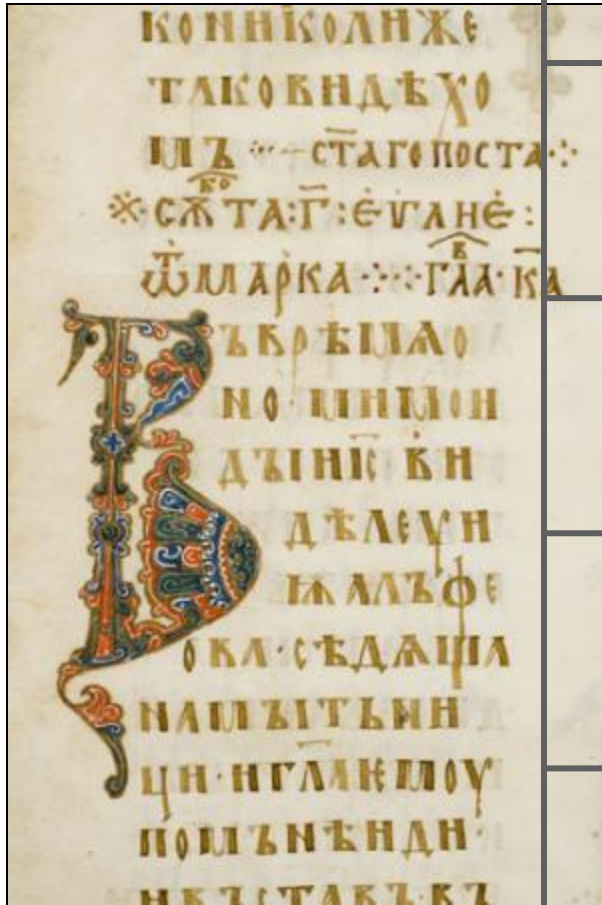 КОННКОЛНЖЕ
ТАКОВИДѢХО
МЪ ⁘ — СТ҃АГОПОСТА ⁘
※ СѪ҇БОТА : Г҃ : ЕѴАНЕ :
Ѿ МАРКА ⁘ ГЛА В҃ · К҃А
ВЪВРѢМѦО
НО · МИМОИ
ДЫИІС҃ ВИ
ДѢЛЕѴИ
ꙖАЛЪФЕ
ОВА · СѢДѦЩА
НАМЫТЬНИ
ЦИ · ИГЛ҃АѤМОУ
ПОМЪНѢИДИ ·
ИВЪСТАВЪ · ВЪ